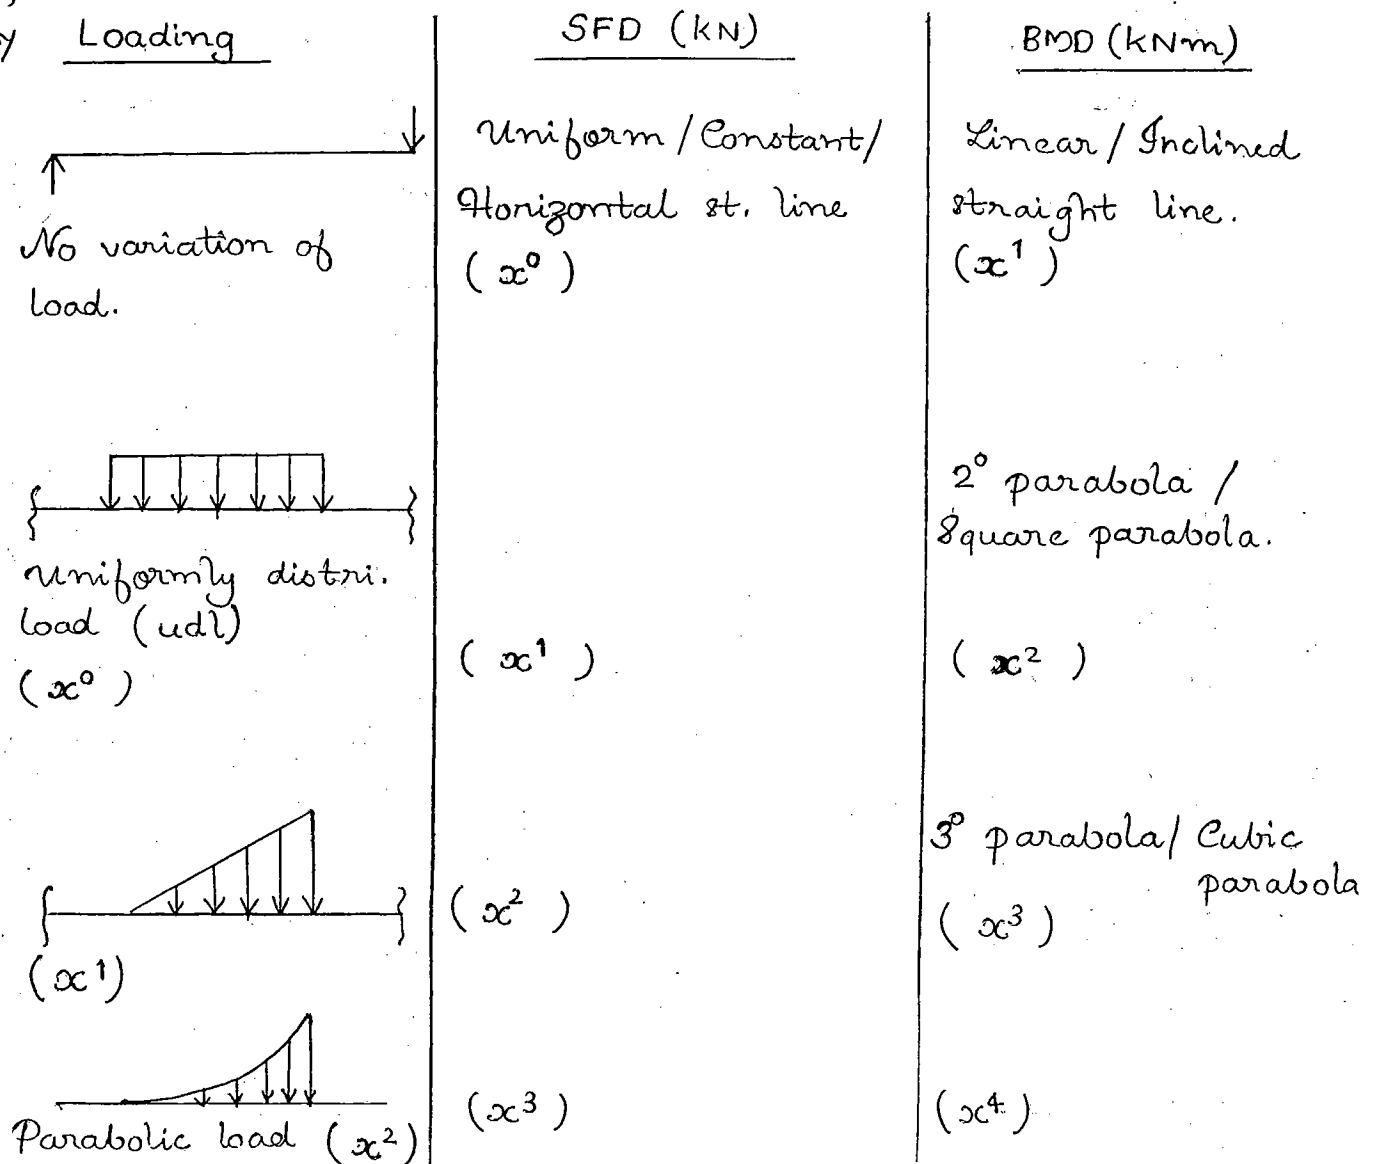 y Loading
SFD (kN)
BMD (kNm)
No variation of
load.
Uniform / Constant /
Horizontal st. line
(x⁰)
Linear / Inclined
straight line.
(x¹)
Uniformly distri.
load (udl)
(x⁰)
(x¹)
2° parabola /
Square parabola.
(x²)
(x¹)
(x²)
3° parabola / Cubic
parabola
(x³)
Parabolic load (x²)
(x³)
(x⁴)